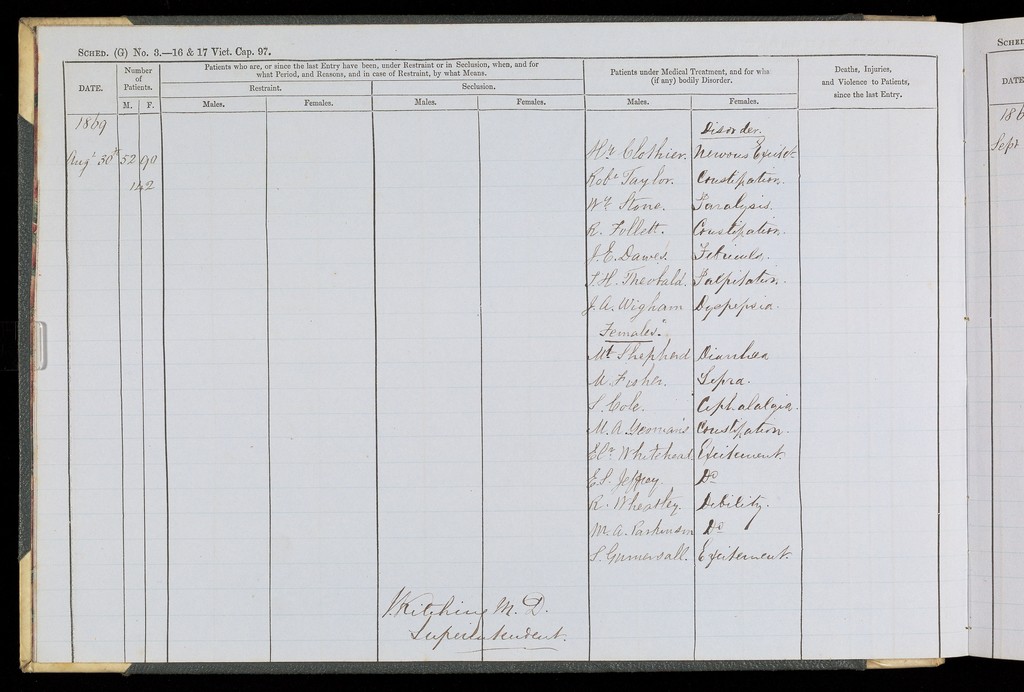 SCHED. (G) No. 3.—16 & 17 Vict. Cap. 97.
DATE.
Number of Patients.
M. F.
Patients who are, or since the last Entry have been, under Restraint or in Seclusion, when, and for
what Period, and Reasons, and in case of Restraint, by what Means.
Restraint. Seclusion.
Males. Females. Males. Females.
Patients under Medical Treatment, and for what
(if any) bodily Disorder.
Males. Females.
Deaths, Injuries,
and Violence to Patients,
since the last Entry.
1869
Disorder.
Augt 30th 52 90 Hy Clothier. Nervous Excitet
142 Robt Taylor. Constipation.
Wm Stone. Paralysis.
R. Follett. Constipation.
J. E. Dawes. Febricula.
S. H. Theobald. Palpitation.
J. A. Wigham Dyspepsia.
"Females."
Mt Shepherd Diarrhœa
M. Fisher. Lepra.
S. Cole. Cephalalgia.
M. A. Yeomans Constipation.
Elr Whitehead Excitement.
E. S. Jeffrey. Do
R. Wheatley. Debility.
M. A. Parkinson Do
S. Gumersall. Excitement.
J. Kitching M. D.
Superintendent.
SCHED
DATE
186
Sept